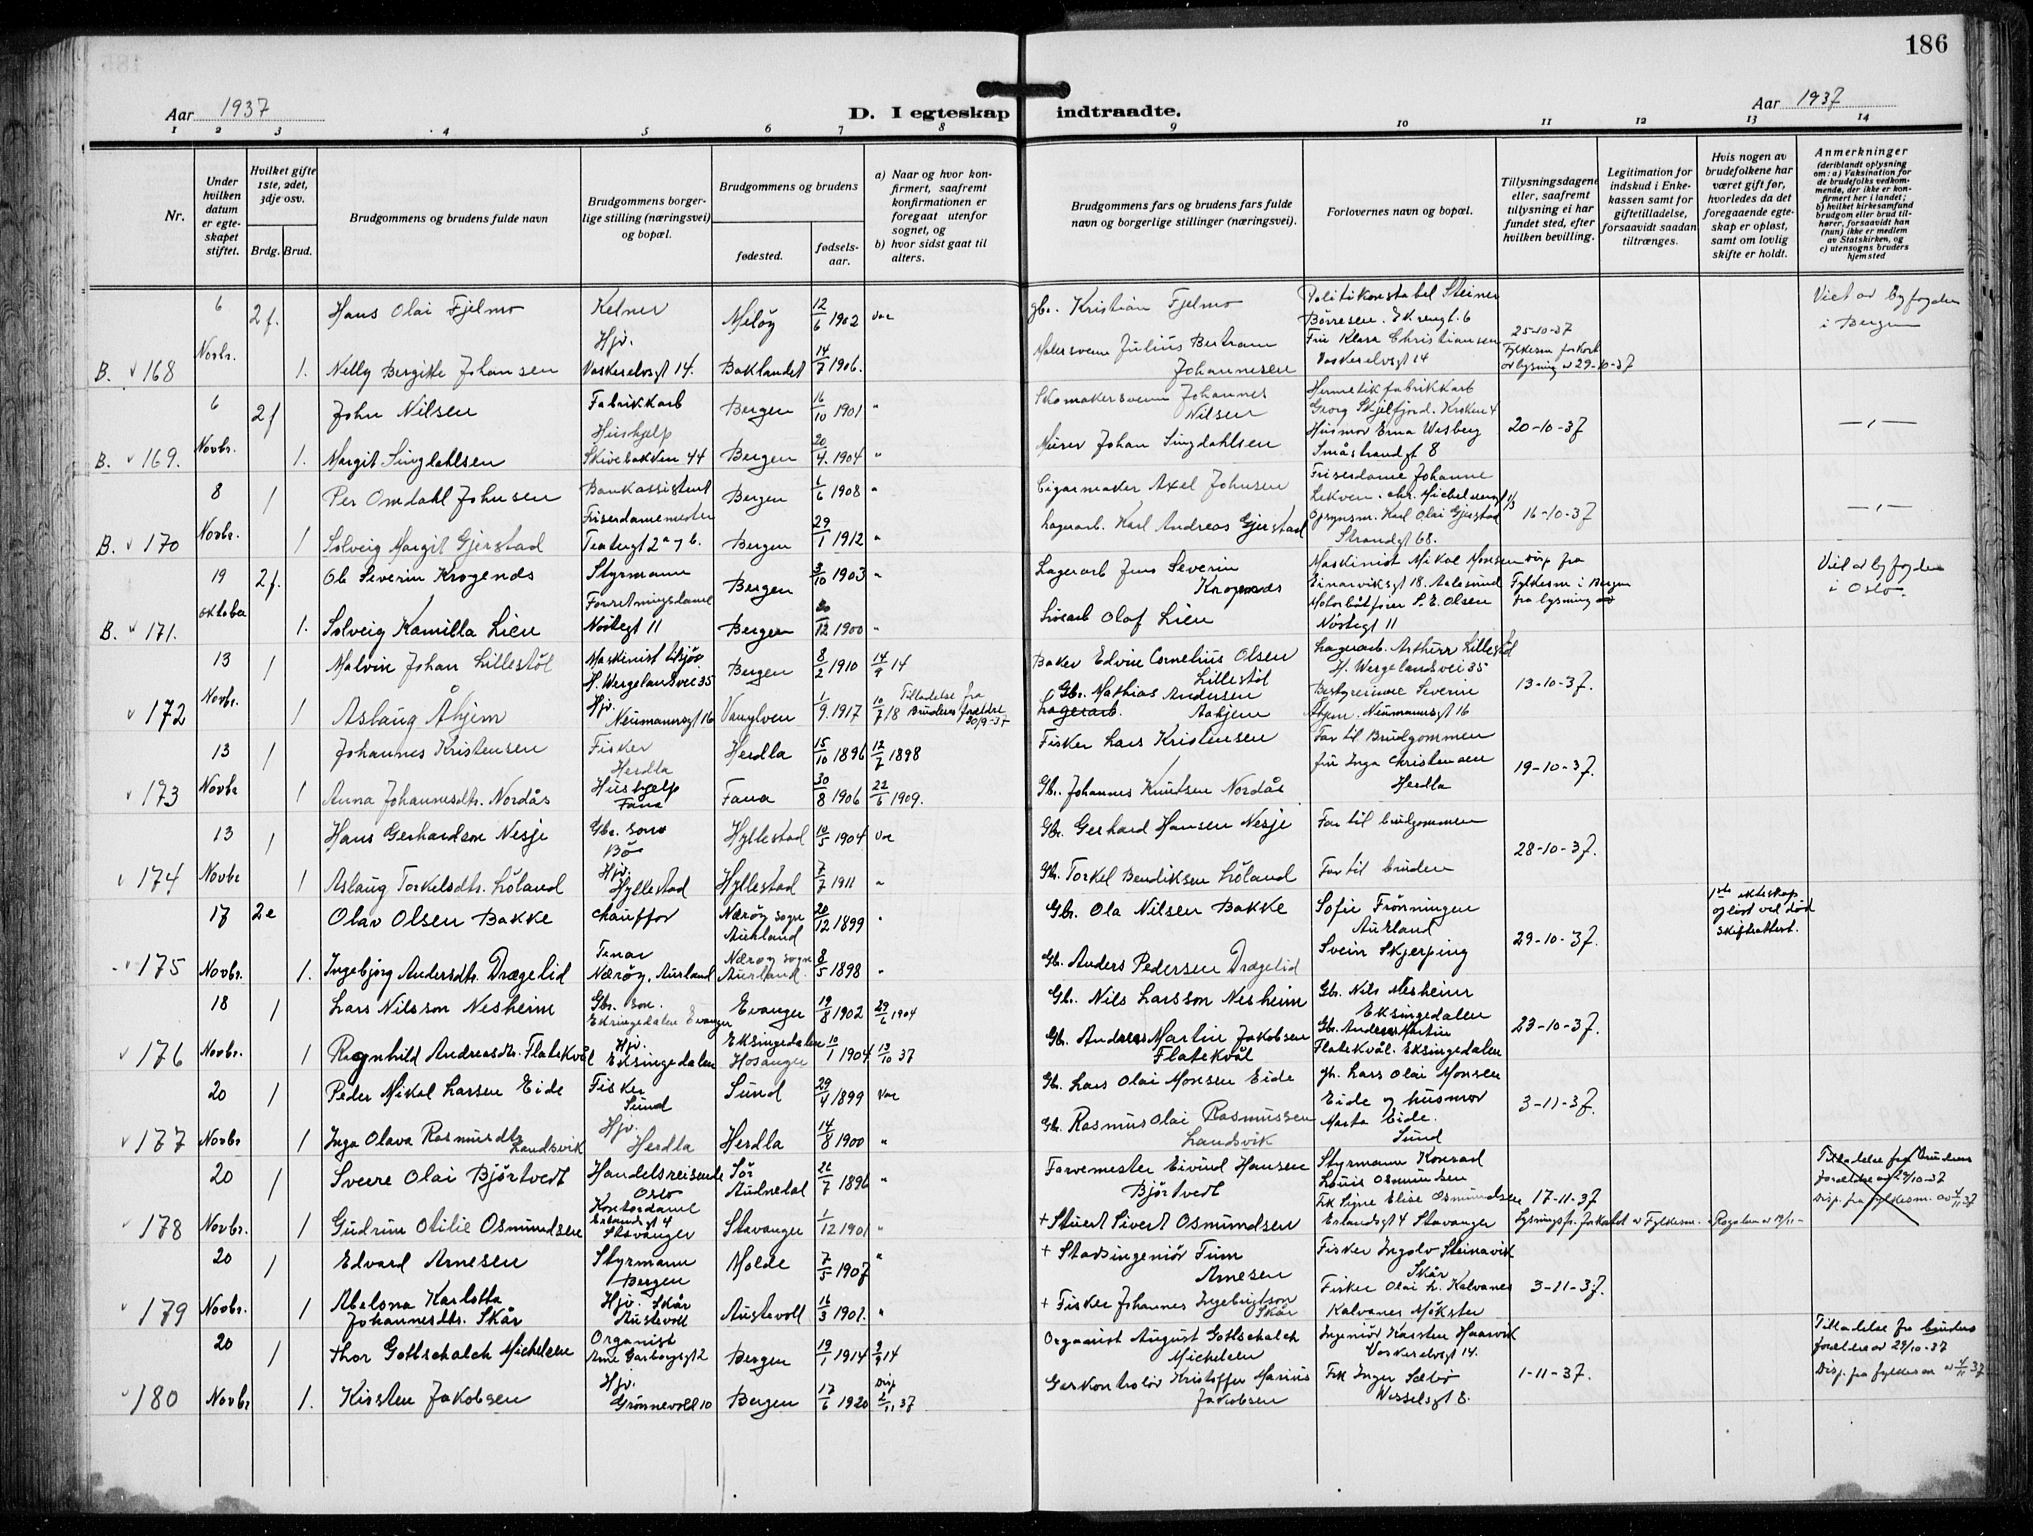 186
Aar 1937
D. I egteskap indtraadte.
Aar 1937
1 2 3 4 5 6 7 8 9 10 11 12 13 14
Nr.
Under hvilken datum er egteskapet stiftet.
Hvilket gifte 1ste, 2det, 3dje osv.
Brdg. Brud.
Brudgommens og brudens fulde navn
Brudgommens borgerlige stilling (næringsvei) og bopæl.
Brudgommens og brudens
fødested.
fødselsaar.
a) Naar og hvor konfirmert, saafremt konfirmationen er foregaat utenfor sognet, og
b) hvor sidst gaat til alters.
Brudgommens fars og brudens fars fulde navn og borgerlige stillinger (næringsvei).
Forlovernes navn og bopæl.
Tillysningsdagene eller, saafremt tillysning ei har fundet sted, efter hvilken bevilling.
Legitimation for indskud i Enkekassen samt for giftetilladelse, forsaavidt saadan tiltrænges.
Hvis nogen av brudefolkene har været gift før, hvorledes da det foregaaende egteskap er opløst, samt om lovlig skifte er holdt.
Anmerkninger
(deriblandt oplysning om: a) Vaksination for de brudefolks vedkommende, der ikke er konfirmert her i landet; b) hvilket kirkesamfund brudgom eller brud tilhører, forsaavidt han (hun) ikke er medlem av Statskirken, og c) utensogns bruders hjemsted
6 2f. Hans Olai Fjelmo Kelner Meløy 12/6 1902 Vor gbr. Kristian Fjelmo Politikonstabel Steinar Børresen. Ekrengt. 6 Viet av byfogden i Bergen
B. 168 Novbr. 1. Nelly Bergitte Johansen Hjv. Vaskerelvsgt 14. Baklandet 14/7 1906. Malersvenn Julius Bertram Johannesen Fru Klara Christiansen Vaskerelvsgt 14 25-10-37 Fylkesm forkort av lysning av 29-10-37
6 2f John Nilsen Fabrikkarb Bergen 16/10 1901 " Skomakersvenn Johannes Nilsen Hermetikfabrikkarb Georg Skjelfjord. Kroken 4 20-10-37 —"—
B. 169. Novbr. 1. Margit Singdahlsen Hushjelp Skivebakken 44 Bergen 20/4. 1904 " Murer Johan Singdahlsen Husmor Erna Wesberg Småstrandgt 8
8 1 Per Omdahl Johnsen Bankassistent Bergen 1/6 1908 " Cigarmaker Axel Johnsen Friserdame Johanne Lekven. 16-10-37 —"—
B. 170 Novbr. 1 Solveig Margit Gjerstad Friserdamemester Teatergt 2a 7 b. Bergen 29/1 1912 " Lagerarb. Karl Andreas Gjerstad Opsynsm. Karl Olai Gjerstad Strandgt 68.
19 2f. Ole Severin Krogenes Styrmann Bergen 3/10 1903 " Lagerarb Jens Severin Krogenes Maskinist Mikal Monsen Einarviksgt 18. Aalesund Disp fra Fylkesm i Bergen fra lysning Viet av byfogden i Oslo.
B. 171. oktober 1. Solveig Kamilla Lien Forretningsdame Nøstegt 11 Bergen 20/12 1900 " Løsarb Olaf Lien Motorbåtfører S. E. Olsen Nøstegt 11
13 1 Malvin Johan Lillestøl Maskinist tilsjøs H. Wergelandsvei 35 Bergen 8/2 1910 14/9 14 Baker Edvin Cornelius Olsen Lillestøl Lagerarb. Arthur Lillestøl H. Wergelandsvei 35 13-10-37.
172 Novbr. 1 Aslaug Åhjem Hjv. Neumannsgt 16 Vanylven 1/9. 1917 10/7 18 Tilladelse fra Brudens foreldre 30/9-37 Gbr. Mathias Andersen Aahjem Bestyrerinne Severin Åhjem. Neumannsgt 16
13 1 Johannes Kristensen Fisker Herdla Herdla 15/10 1896 12/7 1898 Fisker Lars Kristensen Far til Brudgommen 19-10-37.
173 Novbr 1 Anna Johannesdtr. Nordås Hushjelp Fana Fana 30/8 1906 22/6 1909. Gbr. Johannes Knutsen Nordås Fru Inga Christensen Herdla
13 1 Hans Gerhardson Nesje Gbr. sønn Bö Hyllestad 10/5 1904 Vor Gbr. Gerhard Hansen Nesje Far til brudgommen 28-10-37.
174 Novbr 1 Aslaug Torkelsdtr. Löland Hjv. Hyllestad Hyllestad 7/7 1911 " Gb. Torkel Bendiksen Löland Far til bruden
17 2e Olav Olsen Bakke Chauffør Nærøy sogn Aurland 20/12 1899 " Gbr. Ola Nilsen Bakke Sofie Frønningen Aurland 29-10-37. 1ste ekteskap opløst ved død skifteattest.
175 Novbr. 1. Ingebjørg Andersdtr. Drægelid Nærøy, Aurland Nærøy sogn Aurland. 8/5 1898 " Gb. Anders Pedersen Drægelid Svein Skjerping
18 1 Lars Nilsson Nesheim Gbr. søn. Eksingedalen Evanger Evanger 19/8 1902 29/6 1904 Gb. Nils Larsson Nesheim Gb. Nils Nesheim Eksingedalen 23-10-37.
176 Novbr. 1 Ragnhild Andreasdtr. Flatekvål Hjv. Eksingedalen Eksingedalen Hosanger 10/1 1904 13/10 37 Gb. Andreas Martin Jakobsen Flatekvål Gb. Andreas Martin Flatekvål. Eksingedalen
20 1 Peder Mikal Larsen Eide Fisker Sund Sund 29/4 1899 Vor Gb. Lars Olai Monsen Eide gb. Lars Olai Monsen Eide og husmor 3-11-37.
177 Novbr 1 Inga Olava Rasmusdtr. Landsvik Hjv. Herdla Herdla 14/8 1900 " Gb. Rasmus Olai Rasmussen Landsvik Marta Eide. Sund
20 1 Sverre Olai Bjørtvedt Handelsreisende Oslo Sør Audnedal 26/7 1896 " Farvemester Eivind Hansen Bjørtvedt Styrmann Konrad Louis Osmundsen 17-11-37 Tilladelse fra brudens foreldre av 29/10-37 Disp. fra fylkesm. av 4/11 37
178 Novbr. 1 Gudrun Otilie Osmundsen Kontordame Erlandsgt 4 Stavanger Stavanger 1/12 1901 " + Stuert Sivert Osmundsen Frk Signe Elise Osmundsen Erlandsgt 4 Stavanger
20 1 Edvard Arnesen Styrmann Bergen Molde 7/5 1907 " + Stadsingeniør Tinn Arnesen Fisker Ingolv Steinsvik Skår 3-11-37.
179 Novbr. 1 Abelona Karlotta Johannesdtr. Skår Hjv. Skår Austevoll Austevoll 16/3 1901. " + Fisker Johannes Ingebrigtson Skår Fisker Olai L. Kalvanes Kalvanes Møkster
20 1 Thor Gottschalch Michelsen Organist Arne Garborgsgt 2 Bergen 19/1 1914 9/9 14 Organist August Gottschalch Michelsen Ingeniør Karsten Haarvik Vaskerelvsgt 14. 1-11-37. Tilladelse fra brudens foreldre av 29/10-37 Disp. fra fylkesm av 4/11 37
180 Novbr 1. Kirsten Jakobsen Hjv. Grønnevoll 10 Bergen 17/6 1920 Disp 2/11 37 Gaskontrolør Kristoffer Marius Jakobsen Frk Inger Sæbø Wesselsgt 8.